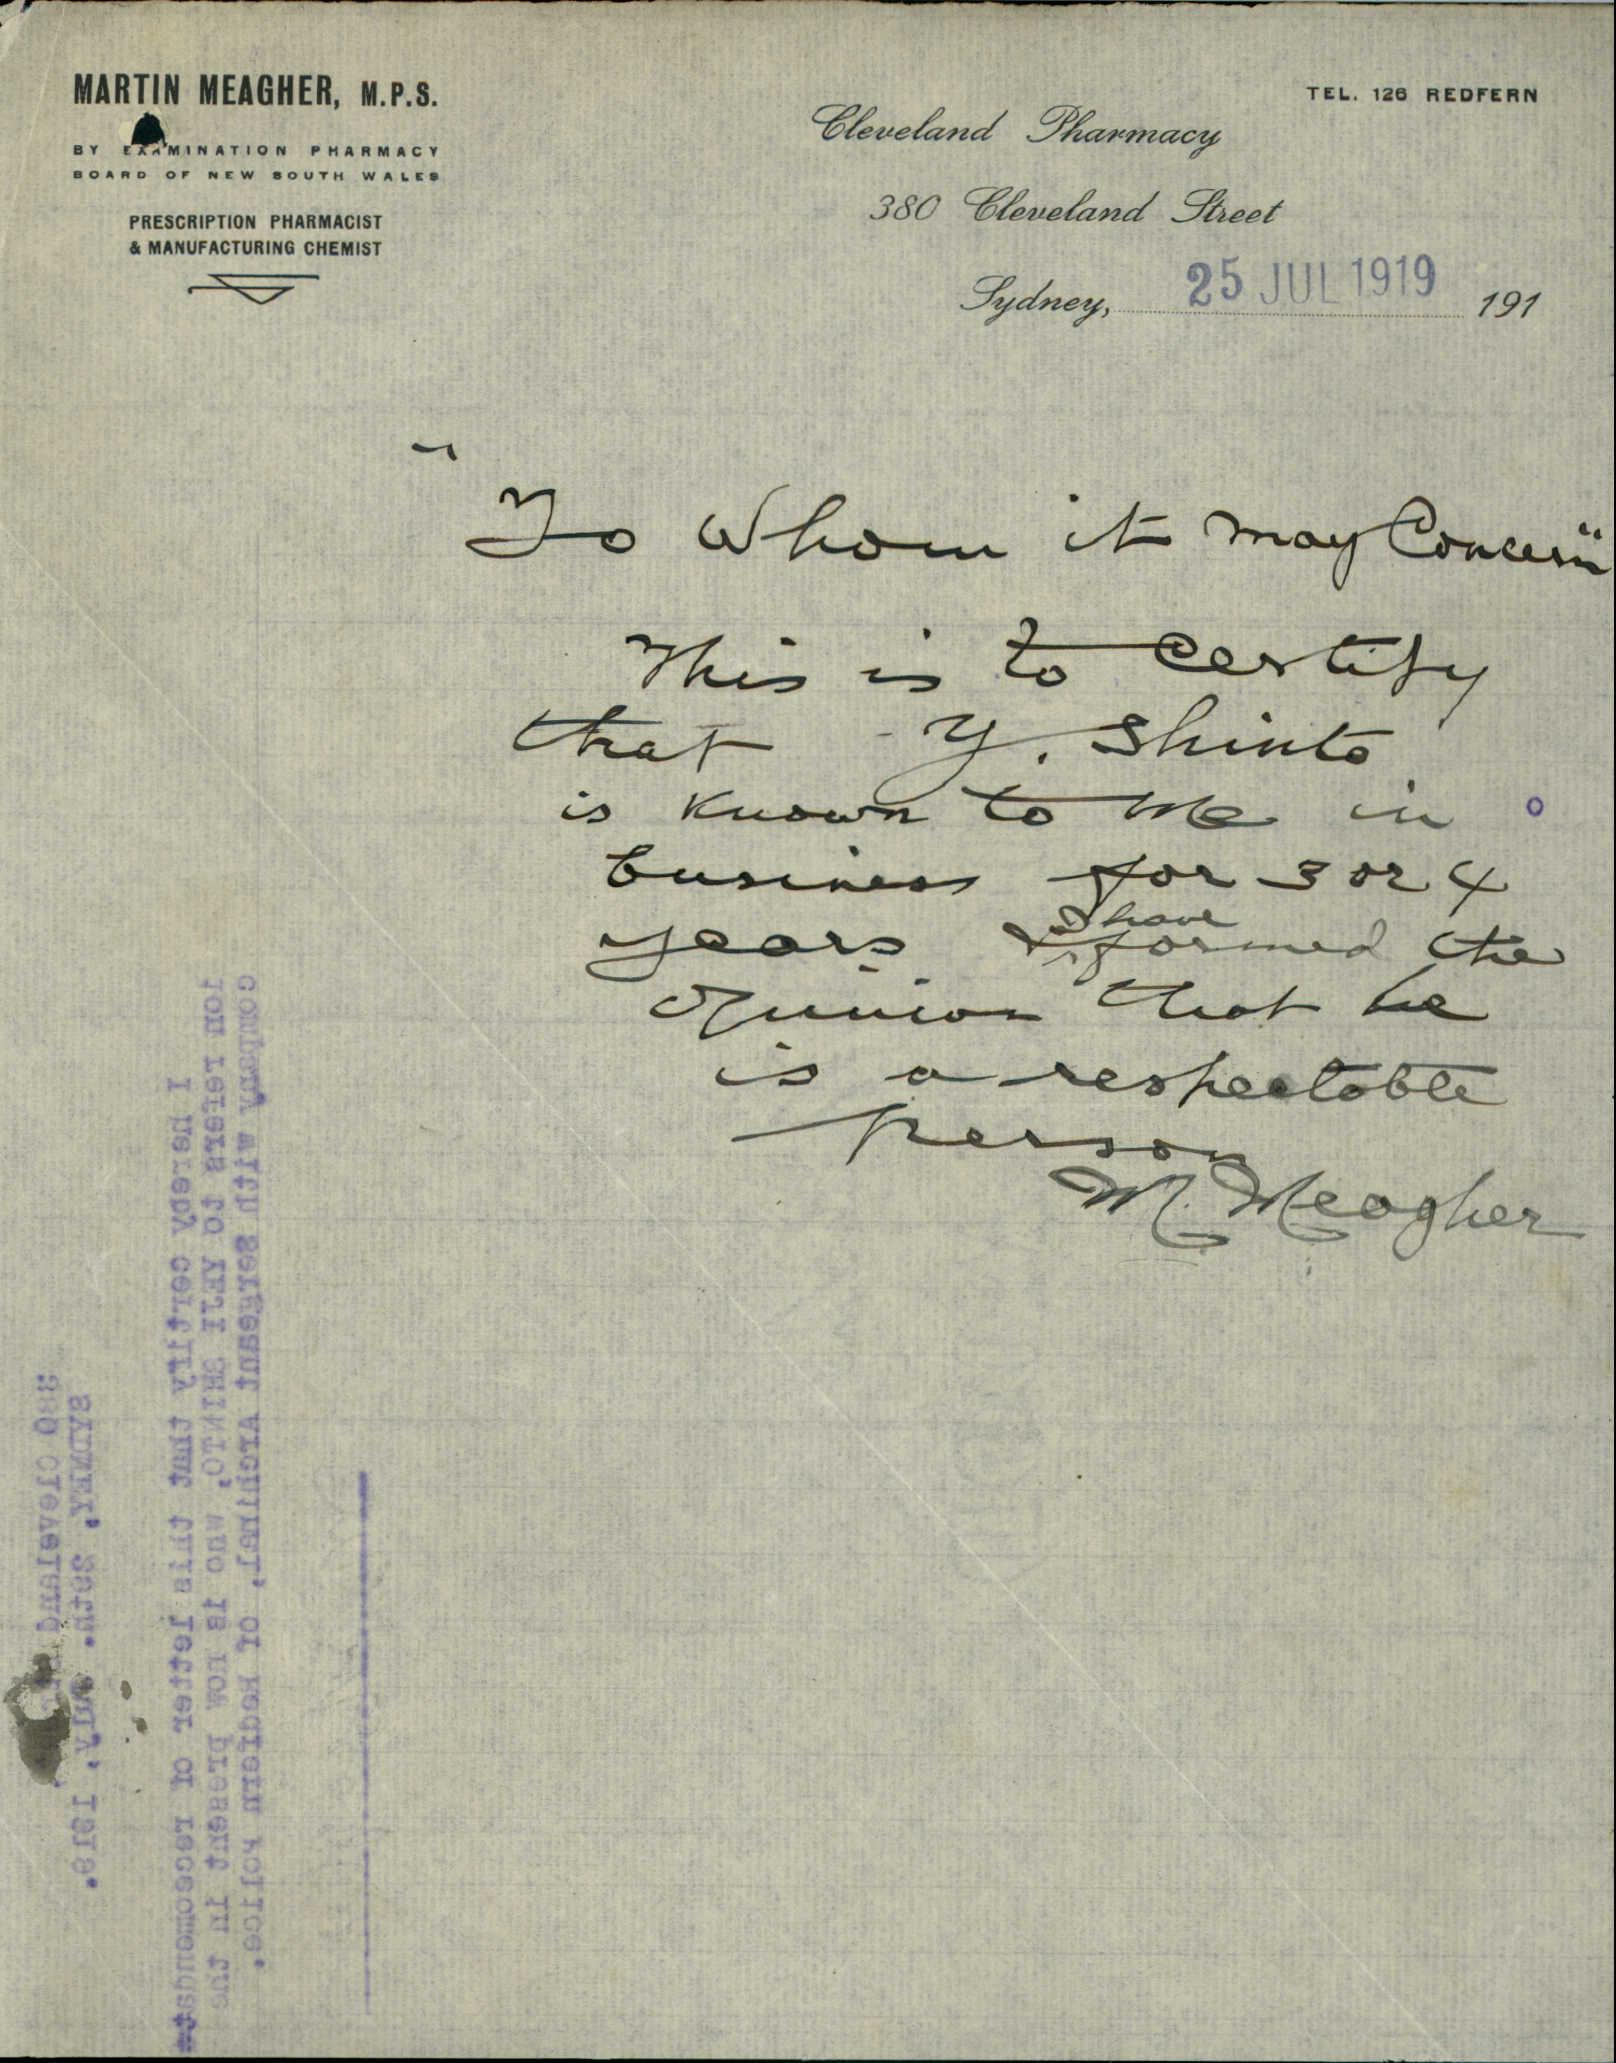 MARTIN MEAGHER, M.P.S.
BY EXAMINATION PHARMACY
BOARD OF NEW SOUTH WALES
PRESCRIPTION PHARMACIST
& MANUFACTURING CHEMIST
TEL. 126 REDFERN
Cleveland Pharmacy
380 Cleveland Street
Sydney, 25 JUL 1919 191
"To Whom it may Concern"
This is to certify
that Y. Shinto
is known to me in
business for 3 or 4
years & I have formed the
opinion that he
is a respectable
person
M. Meagher
380 Cleveland
SYDNEY, 25th. July, 1919.
I hereby certify that this letter of recommendat
ion refers to YEJI SHINTO, who is now present in the
company with Sergeant Archinal, of Redfern Police.